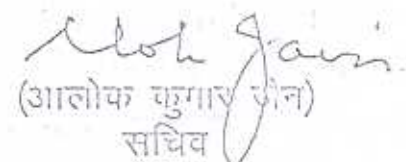 Alok Jain
(आलोक कुमार जैन)
सचिव